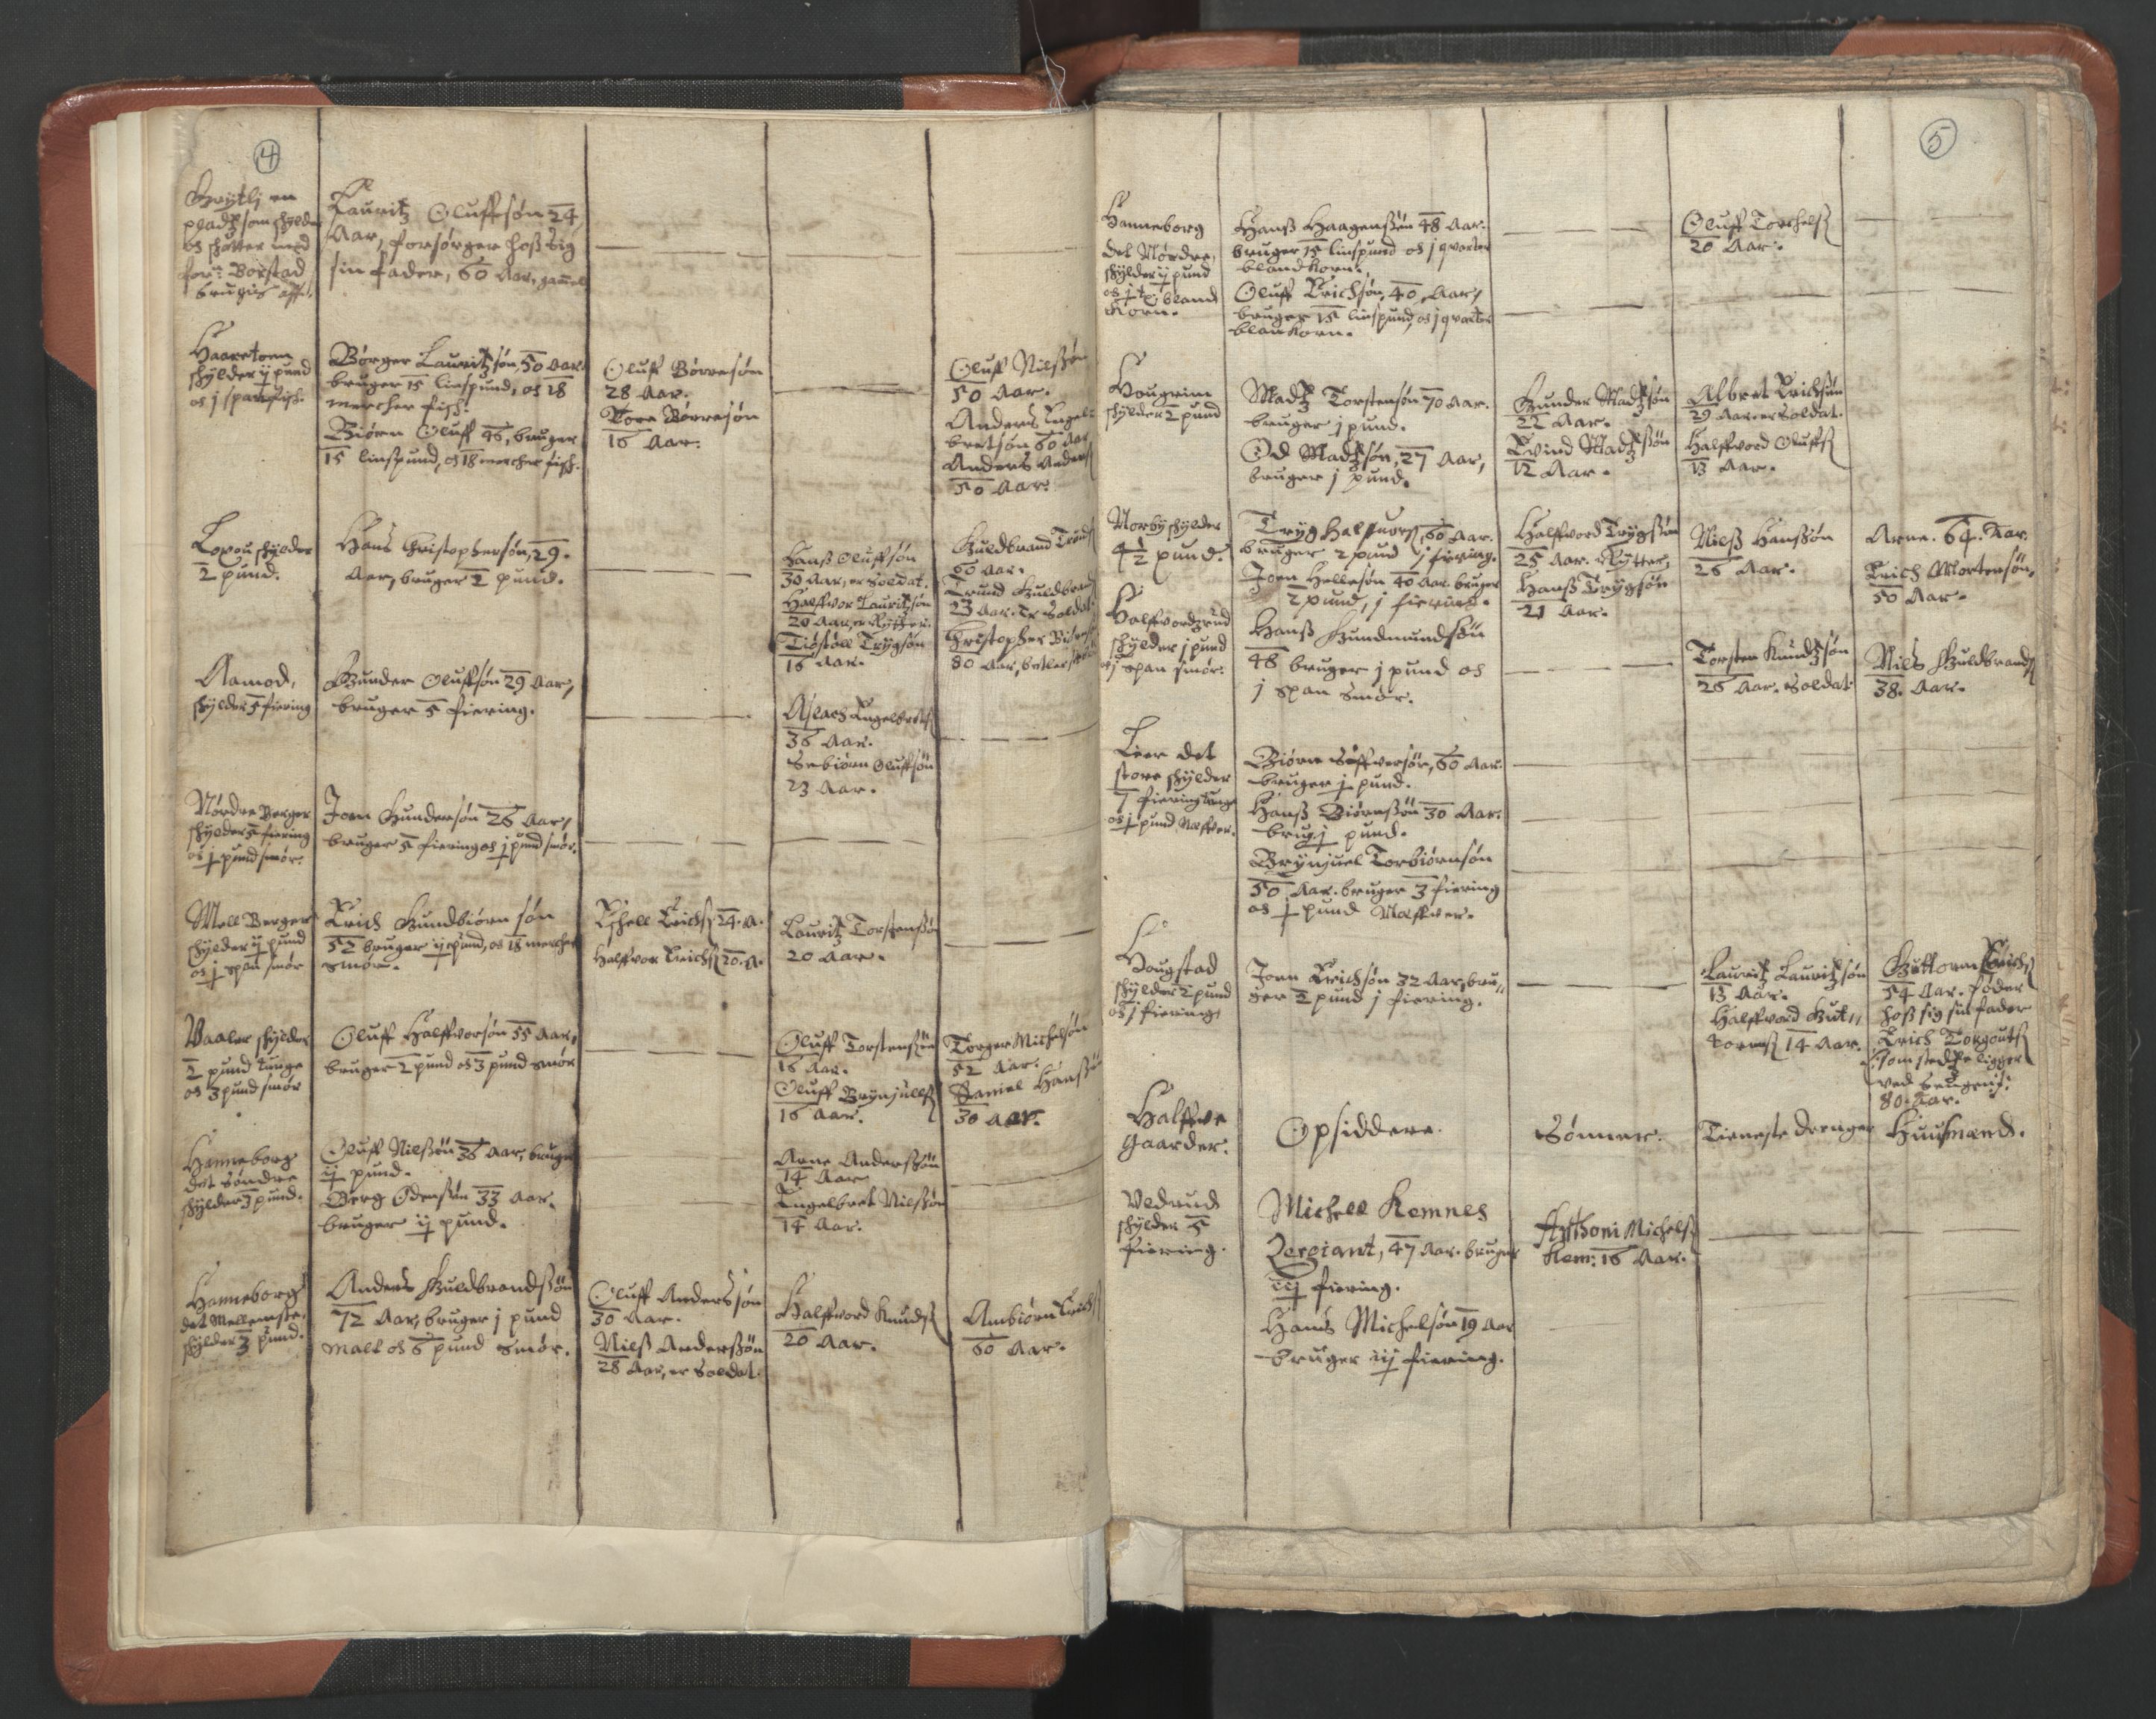 4
pladtz som skylder
och skatter med
forn: Borstad
brugis aff.
Lauritz Oluffsøn 24
Aar, forsørger hoß sig
sin fader, 60 Aar, gamel
Haaretonn
skylder ij pund
och j span fisk.
Børger Lauritzsøn, 50 Aar.
bruger 15 lispund, och 18
mercher fisk.
Biørn Oluff 46, bruger
15 lispund, och 18 mercher fisk.
Oluff Børresøn
28 Aar.
Tore Børresøn
16 Aar.
Oluff Nilssøn
50 Aar.
Anders Engel-
bretsøn 60 Aar
Anders Anders
50 Aar.
skylder
2 pund.
Hans Christophersøn, 29.
Aar, bruger 2 pund.
Hanß Oluffsøn
30 Aar, er Soldat.
Halffvor Lauritzsøn
20 Aar, er Rytter.
Tiøstoll Trygsøn
16 Aar.
Guldbrand Trond
60 Aar.
Trund Guldbrand
23 Aar. er Soldat.
Christopher
80 Aar,
Aamod,
skylder 5 fiering
Gunder Oluffsøn 29 Aar,
bruger 5 fiering.
Aslach Engelbrets
36 Aar.
Sebiørn Oluffsøn
23 Aar.
Nordre Berger
skylder 5 fiering
och j pund smør.
Joen Gundersøn 26 Aar,
bruger 5 fiering och j pund smør.
Mell Berger
skylder ij pund
och j span smør
Erich Gundbiørn søn
52 bruger ij pund, och 18 mercher
smør.
Kschell Erichs 24. A.
Halffvor Erichs 20. A.
Lauritz Torstenssøn
20 Aar.
Vaaler skylder
2 pund tunge
och 3 pund smør
Oluff Halffvorsøn 55 Aar,
bruger 2 pund och 3 pund smør
Oluff Torstenssøn
16 Aar.
Oluff Brynjulls
16 Aar.
Torger Michelsøn
52 Aar.
Daniel Hanssøn
30 Aar.
Hanneborg
det Søndre
skylder 3 pund.
Oluff Nilssøn 36 Aar, bruger
ij pund.
Berg Odenssøn 33 Aar.
bruger ij pund.
Arne Anderssøn
14 Aar
Engelbret Nilssøn
14 Aar.
Hanneborg
det Mellemste,
skylder 3 pund.
Anders Guldbrandssøn
72 Aar, bruger j pund
malt och 6 pund smør.
Oluff Anderssøn
30 Aar.
Nilß Anderssøn
28 Aar, er Soldat.
Halffvord Knuds
20 Aar.
Ambiørn Erichs
60 Aar.
5
Hanneborg
det Nørdre,
skylder ij pund
bland
Korn.
Hanß Haagenssøn 48 Aar.
bruger 15 linspund och j qvarter
blandkorn.
Oluff Erichsøn, 40, Aar,
bruger 15 linspund, och j qvarter
blankorn.
Oluff Torchels
20 Aar.
Hougrim
skylder 2 pund
Madtz Torstensøn 70 Aar.
bruger j pund.
Od Madtzsøn, 27 Aar,
bruger j pund.
Gunder Madtzsøn
22 Aar.
Evind Madtzsøn
12 Aar.
Albret Erichsøn
29 Aar. er Soldat.
Halffvord Oluffs
13 Aar.
Norby skylder
4½ pund.
Tryg Halffvors, 60 Aar.
bruger 2 pund j fiering.
Joen Hellesøn 40 Aar. bruger
2 pund, j fiering.
Halffvord Trygssøn
25 Aar. Rytter,
Hanß Trygsøn
21 Aar.
Nilß Hanssøn
26 Aar.
Arne. 64. Aar.
Erich Mortensøn,
50 Aar.
Halffvordzrud
skylder j pund
och j span smør.
Hanß Gundmundssøn
48 bruger j pund och
j span Smør.
Torsten Knudzsøn
26 Aar. Soldat.
Nils Guldbrands
38. Aar.
Lier det
store skylder
7 fiering tunge
och j pund Næffver.
Biørn Siffversøn, 60 Aar.
bruger j pund.
Hanß Biørnssøn 30 Aar.
brug. j pund.
Brynjuel Torbiørnsøn
50 Aar. bruger 3 fiering
och j pund Næffver.
Hougstad
skylder 2 pund
och j fiering
Joen Erichsøn 32 Aar, bru-
ger 2 pund j fiering.
Lauritz Lauritzsøn
13 Aar.
Halffvord Gut-
torms 14 Aar.
Guttorm Erichs
54 Aar. føder
hoß sig sin fader
Erich Torgouts
som stedtze ligger
ved Sengen:
80. Aar.
Halffve
Gaarder.
Opsiddere.
Sønner.
Tieneste Drenger
Huusmænd.
Vedrud
skylder 5
fiering.
Michell Kemnes
Zergiant, 47 Aar. bruger
iij fiering.
Hans Michelsøn 19 Aar
bruger iij fiering.
Anthoni Michels
Kem: 16 Aar.